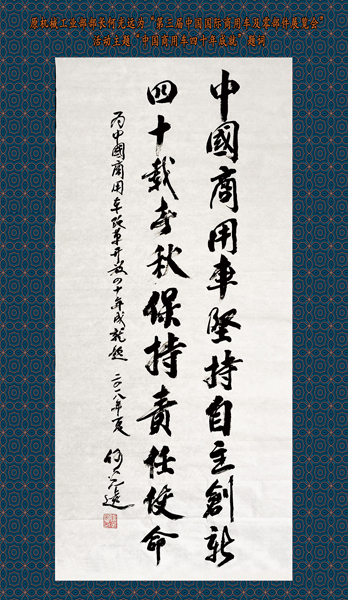 原机械工业部部长何光远为“第三届中国国际商用车及零部件展览会”
活动主题“中国商用车四十年成就”题词
中國商用車堅持自主創新
四十載春秋保持責任使命
为中國商用车改革开放四十年成就题 二〇一八年夏 何光远